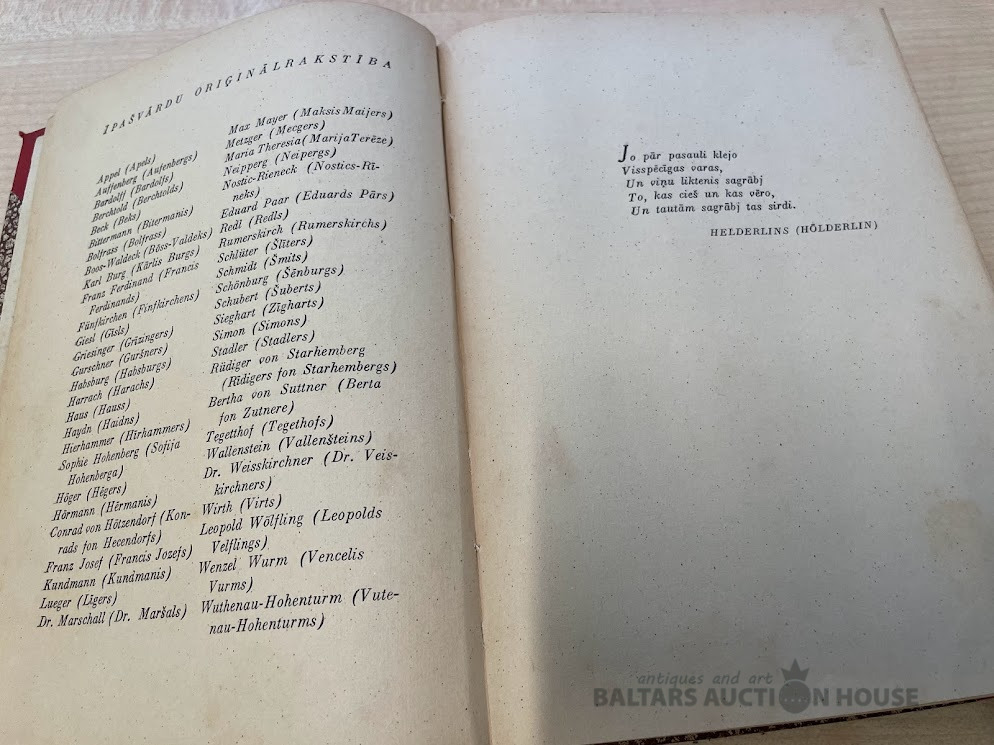 ĪPAŠVĀRDU ORIĢINĀLRAKSTĪBA
Appel (Apels)
Auffenberg (Aufenbergs)
Bardolff (Bardolfs)
Berchtold (Berchtolds)
Beck (Beks)
Bittermann (Bitermanis)
Bolfrass (Bolfrass)
Boos-Waldeck (Böss-Valdeks)
Karl Burg (Kārlis Burgs)
Franz Ferdinand (Francis
Ferdinands)
Fünfkirchen (Finfkirchens)
Giesl (Gīsls)
Griesinger (Grīzingers)
Gurschner (Guršners)
Habsburg (Habsburgs)
Harrach (Harachs)
Haus (Hauss)
Haydn (Haidns)
Hierhammer (Hīrhammers)
Sophie Hohenberg (Sofija
Hohenberga)
Höger (Hēgers)
Hörmann (Hērmanis)
Conrad von Hötzendorf (Kon-
rads fon Hecendorfs)
Franz Josef (Francis Jozefs)
Kundmann (Kundmanis)
Lueger (Līgers)
Dr. Marschall (Dr. Maršals)
Max Mayer (Maksis Maijers)
Metzger (Mecgers)
Maria Theresia (Marija Terēze)
Neipperg (Neipergs)
Nostic-Rieneck (Nostics-Rī-
neks)
Eduard Paar (Eduards Pārs)
Redl (Redls)
Rumerskirch (Rumerskirchs)
Schlüter (Šlīters)
Schmidt (Šmits)
Schönburg (Šēnburgs)
Schubert (Šuberts)
Sieghart (Zīgharts)
Simon (Simons)
Stadler (Stadlers)
Rüdiger von Starhemberg
(Rīdigers fon Starhembergs)
Bertha von Suttner (Berta
fon Zutnere)
Tegetthof (Tegethofs)
Wallenstein (Vallenšteins)
Dr. Weisskirchner (Dr. Veis-
kirchners)
Wirth (Virts)
Leopold Wölfling (Leopolds
Velflings)
Wenzel Wurm (Vencelis
Vurms)
Wuthenau-Hohenturm (Vute-
nau-Hohenturms)
Jo pār pasauli klejo
Visspēcīgas varas,
Un viņu liktenis sagrābj
To, kas cieš un kas vēro,
Un tautām sagrābj tas sirdi.
HELDERLINS (HÖLDERLIN)
antiques and art
BALTARS AUCTION HOUSE